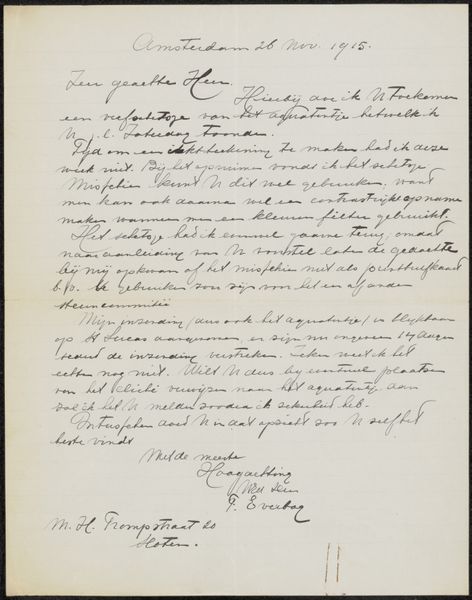 Amsterdam 26 Nov. 1915.
Zeer geachte Heer.
Hierbij doe ik U toekomen
een verfschetsje van het aquatintje hetwelk ik
U j.l. Zaterdag toonde.
Tijd om een inkttekening te maken had ik deze
week niet. Bij het opruimen vond ik het schetsje
Misschien kunt U dit wel gebruiken, want
men kan ook daarna wel een contrastrijke opname
maken wanneer men een kleuren filter gebruikt.
Het schetsje had ik eenmaal gaarne terug, omdat
naar aanleiding van U voorstel later de gedachte
bij mij opkwam of het misschien niet als prentbriefkaart
b.v. te gebruiken zou zijn van het een of andere
steuncommitie
Mijn inzending (dus ook het aquatintje) is blijkbaar
op St Lucas aangenomen, er zijn nu ongeveer 14 dagen
sedert de inzending verstreken. Zeker weet ik het
echter nog niet. Wilt U dus bij eventueel plaatsen
van het cliché verwijzen naar het aquatintje dan
zal ik het U melden zoodra ik zekerheid heb.
Intusschen doet U in dat opzicht zoo U zelf het
beste vindt
Met de meeste
Hoogachting
Ued dier
F. Everbag
M. H. Trompstraat 20
Sloten.